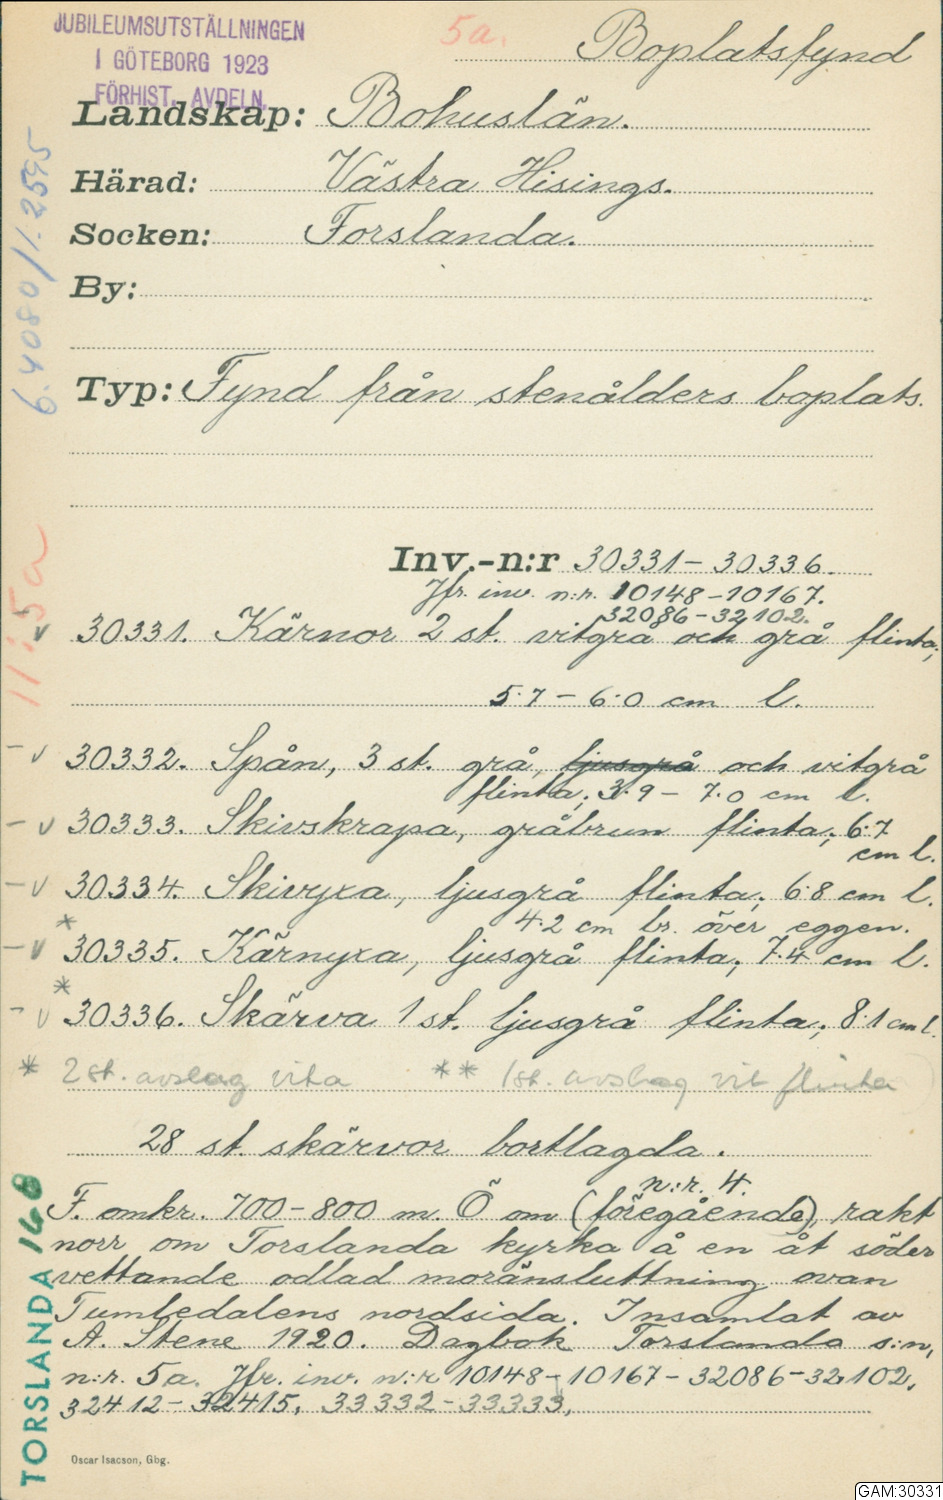 JUBILEUMSUTSTÄLLNINGEN
I GÖTEBORG 1923
FÖRHIST. AVDELN.
5a.
Boplatsfynd
Landskap: Bohuslän.
Härad: Västra Hisings.
Socken: Torslanda.
By:
Typ: Fynd från stenålders boplats.
Inv.-n:r 30331-30336.
Jfr. inv. n:r. 10148-10167.
32086-32102.
30331. Kärnor 2 st. vitgrå och grå flinta;
5.7 - 6.0 cm l.
30332. Spån, 3 st. grå, ljusgrå och vitgrå
flinta; 3.9 - 7.0 cm l.
30333. Skivskrapa, gråbrun flinta; 6.7
cm l.
30334. Skivyxa, ljusgrå flinta; 6.8 cm l.
4.2 cm br. över eggen.
* 30335. Kärnyxa, ljusgrå flinta; 7.4 cm l.
* 30336. Skärva 1 st. ljusgrå flinta; 8.1 cm l.
* 2 st. avslag vita ** 1 st. avslag vit flinta
28 st. skärvor bortlagda.
n:r. 4.
F. omkr. 700-800 m. Ö om (föregående), rakt
norr om Torslanda kyrka å en åt söder
vettande odlad moränsluttning ovan
Tumledalens nordsida. Insamlat av
A. Stene 1920. Dagbok Torslanda s:n,
n:r. 5a. Jfr. inv. n:r 10148-10167-32086-32102,
32412-32415, 33332-33333.
Oscar Isacson, Gbg.
6.4080/1.2595
11:5a
TORSLANDA 168
GAM:30331